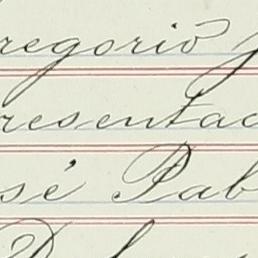 regorio
resentac
sé Pab